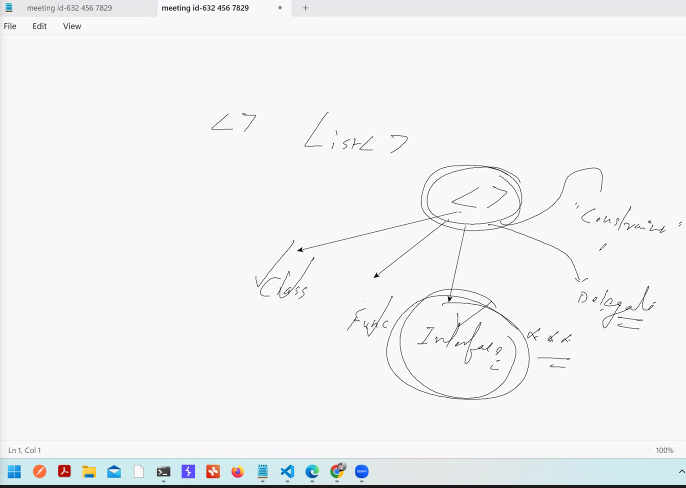 meeting id-632 456 7829
meeting id-632 456 7829
File Edit View
<> List<>
<>
"Constraint"
Class
Func
Interface
Delegate
Ln 1, Col 1
100%
zoom